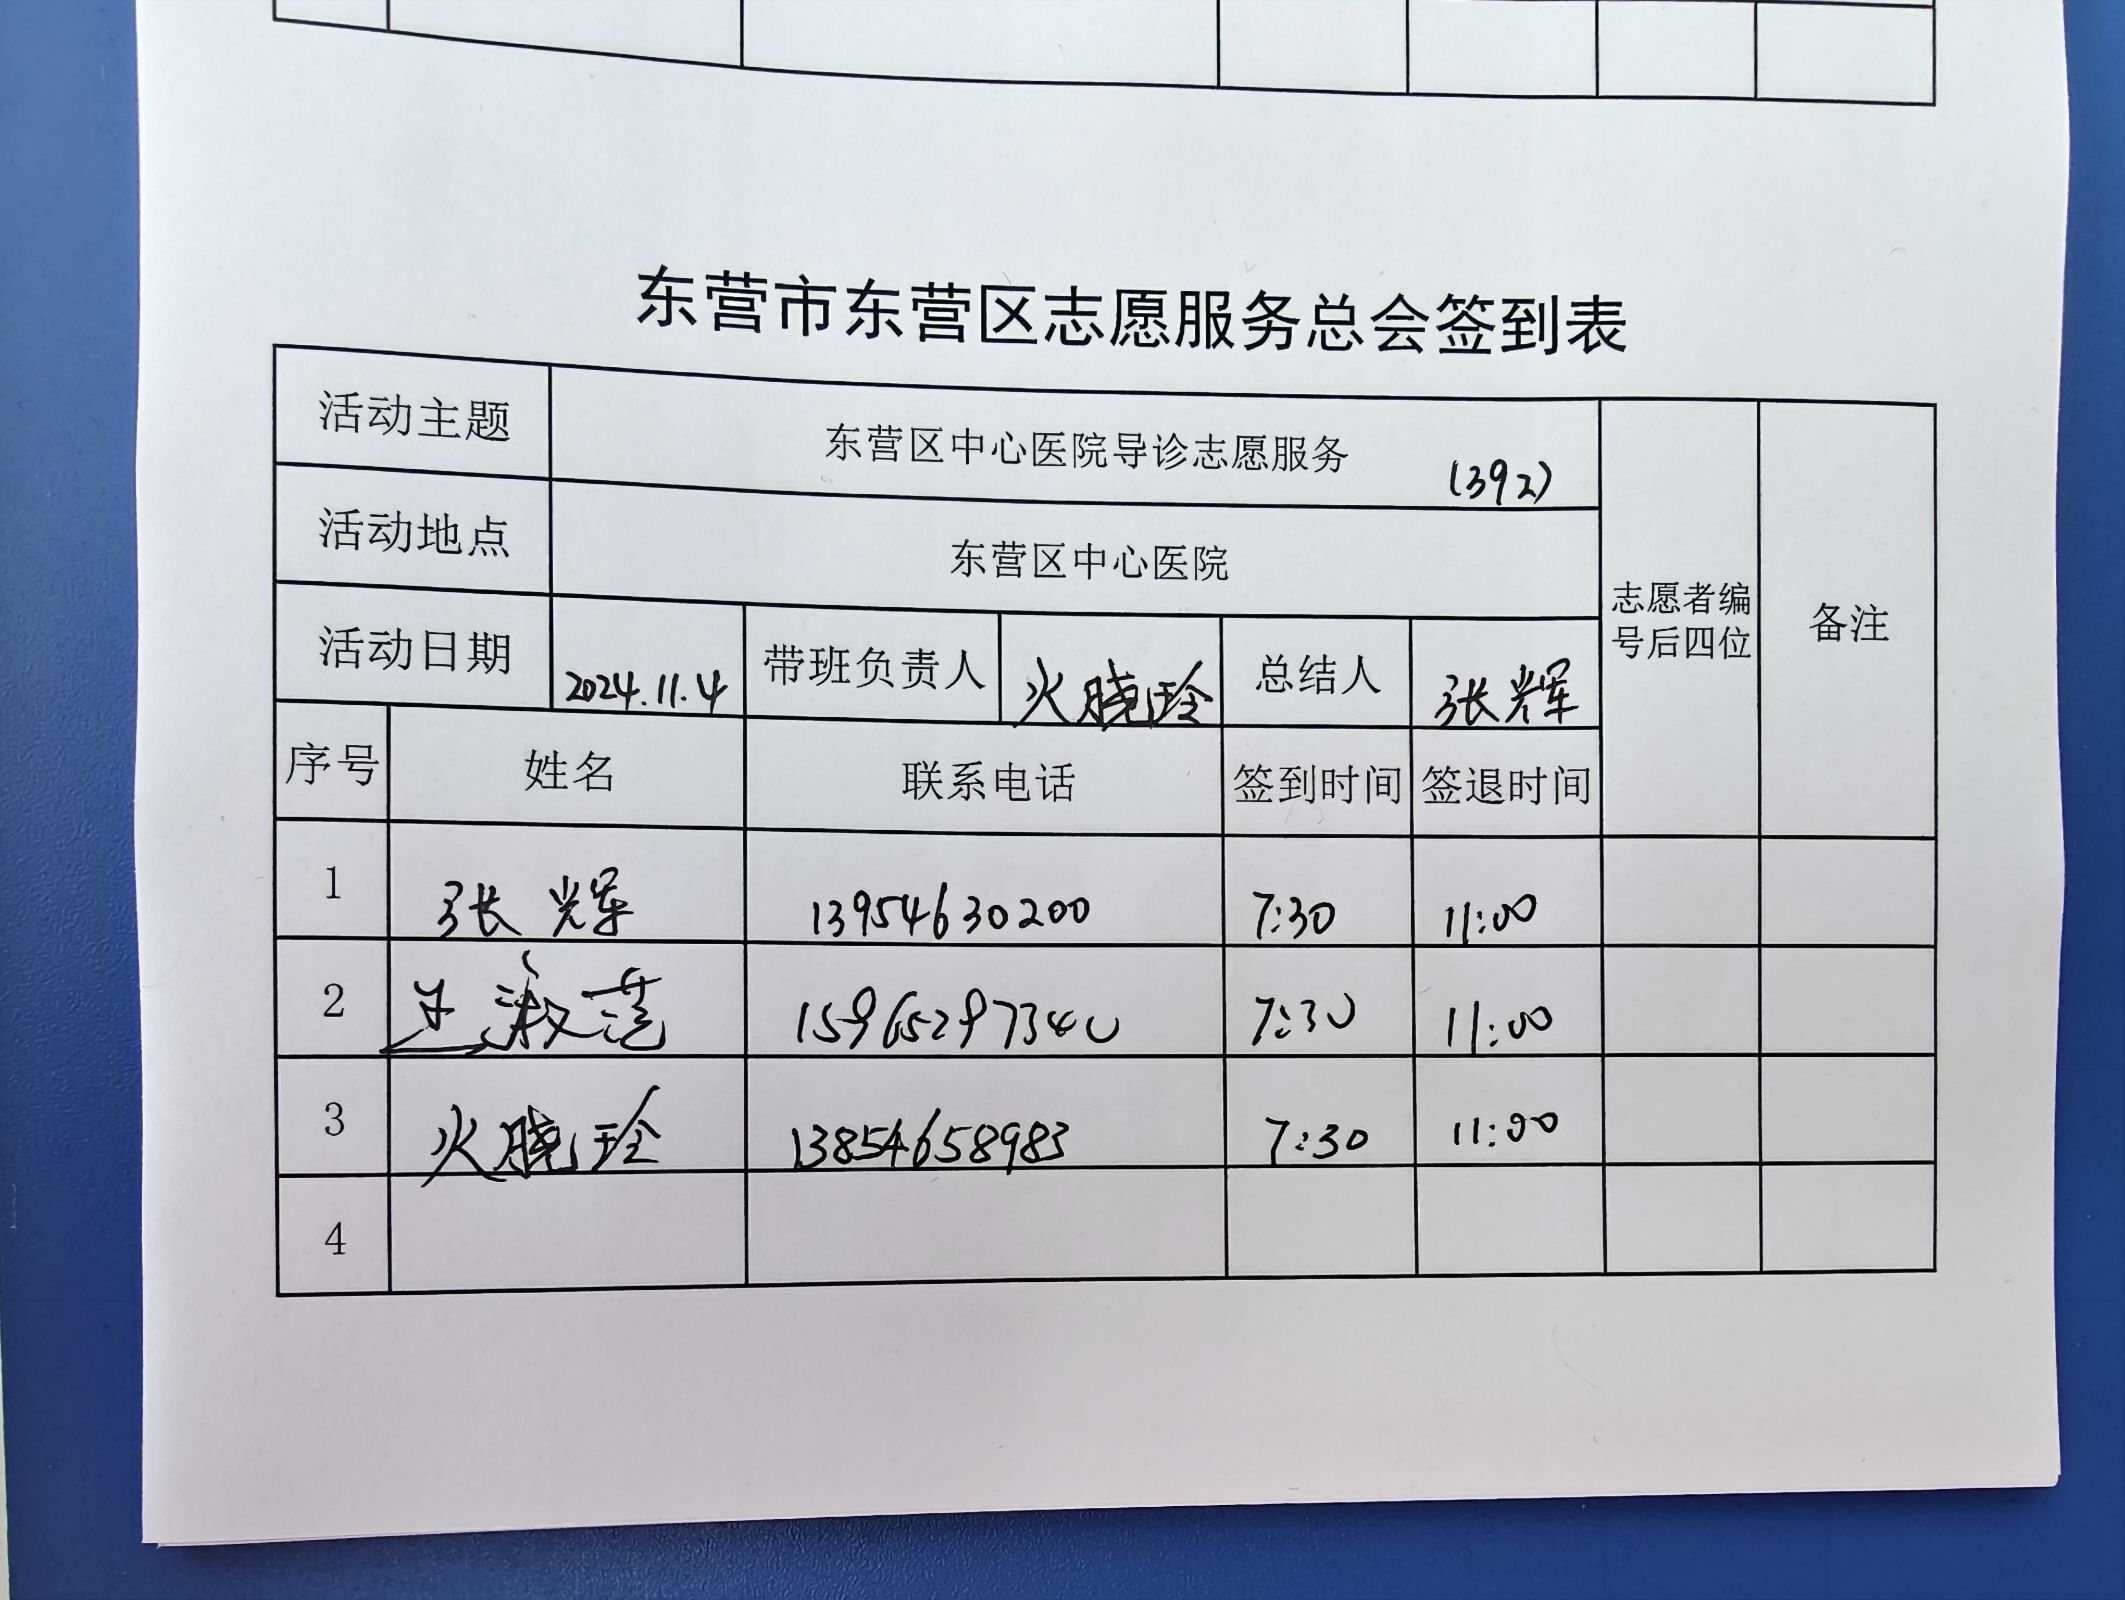 东营市东营区志愿服务总会签到表
活动主题 东营区中心医院导诊志愿服务 (392) 志愿者编号后四位 备注
活动地点 东营区中心医院
活动日期 2024.11.4 带班负责人 火晓玲 总结人 张辉
序号 姓名 联系电话 签到时间 签退时间
1 张辉 13954630200 7:30 11:00
2 王淑范 15965297340 7:30 11:00
3 火晓玲 13854658983 7:30 11:00
4